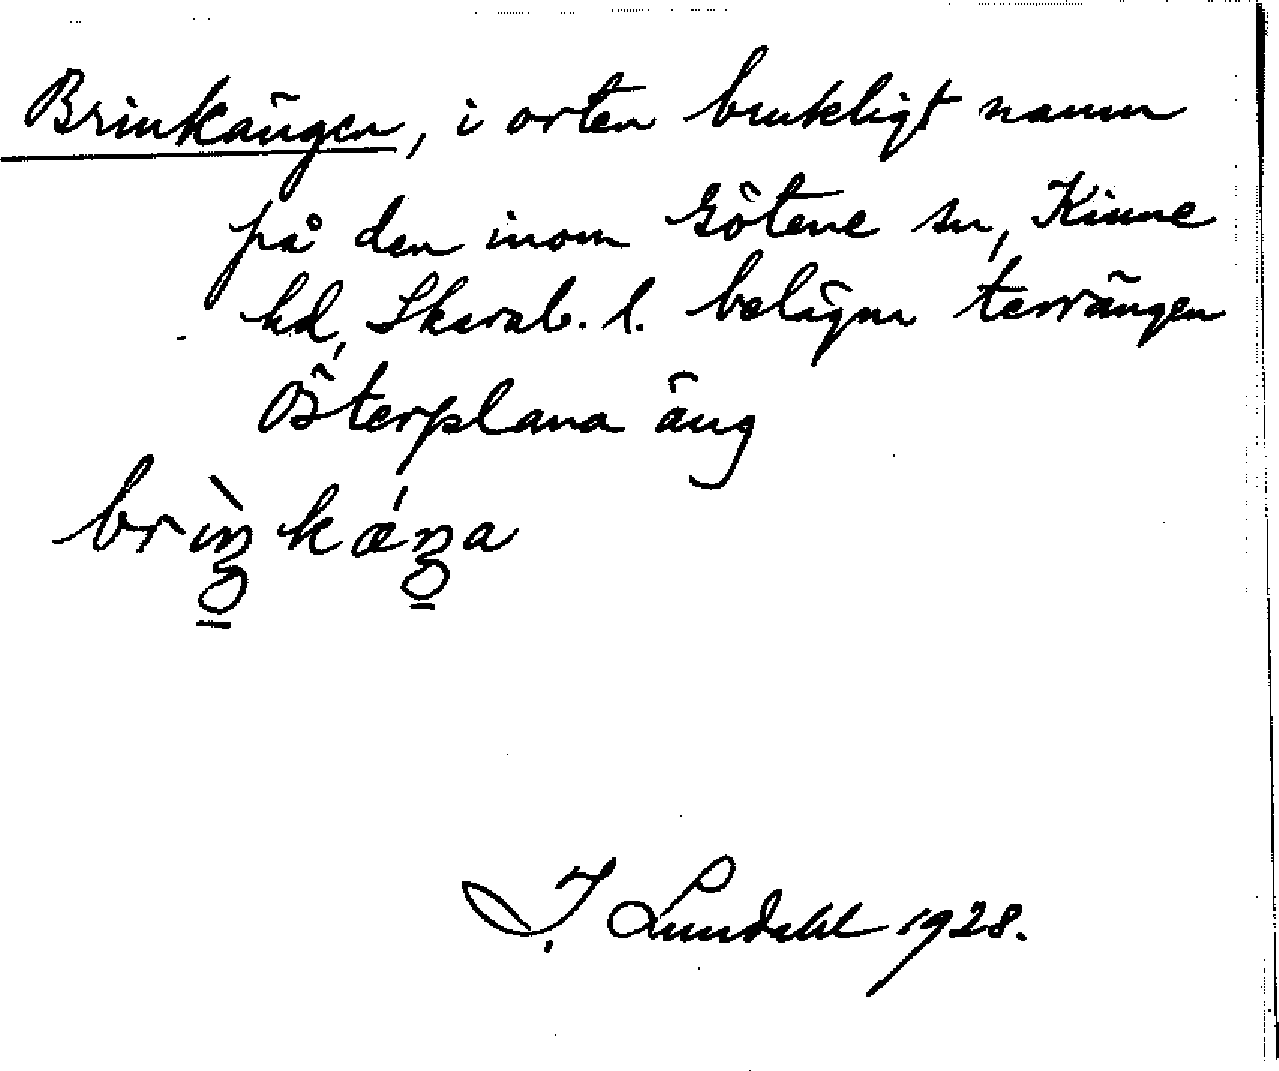 Brinkängen, i orten brukligt namn
på den inom Götene sn, Kinne
hd, Skarab. l. belägna terrängen
Österplana äng
brìŋkǽŋa
I. Lundahl 1928.